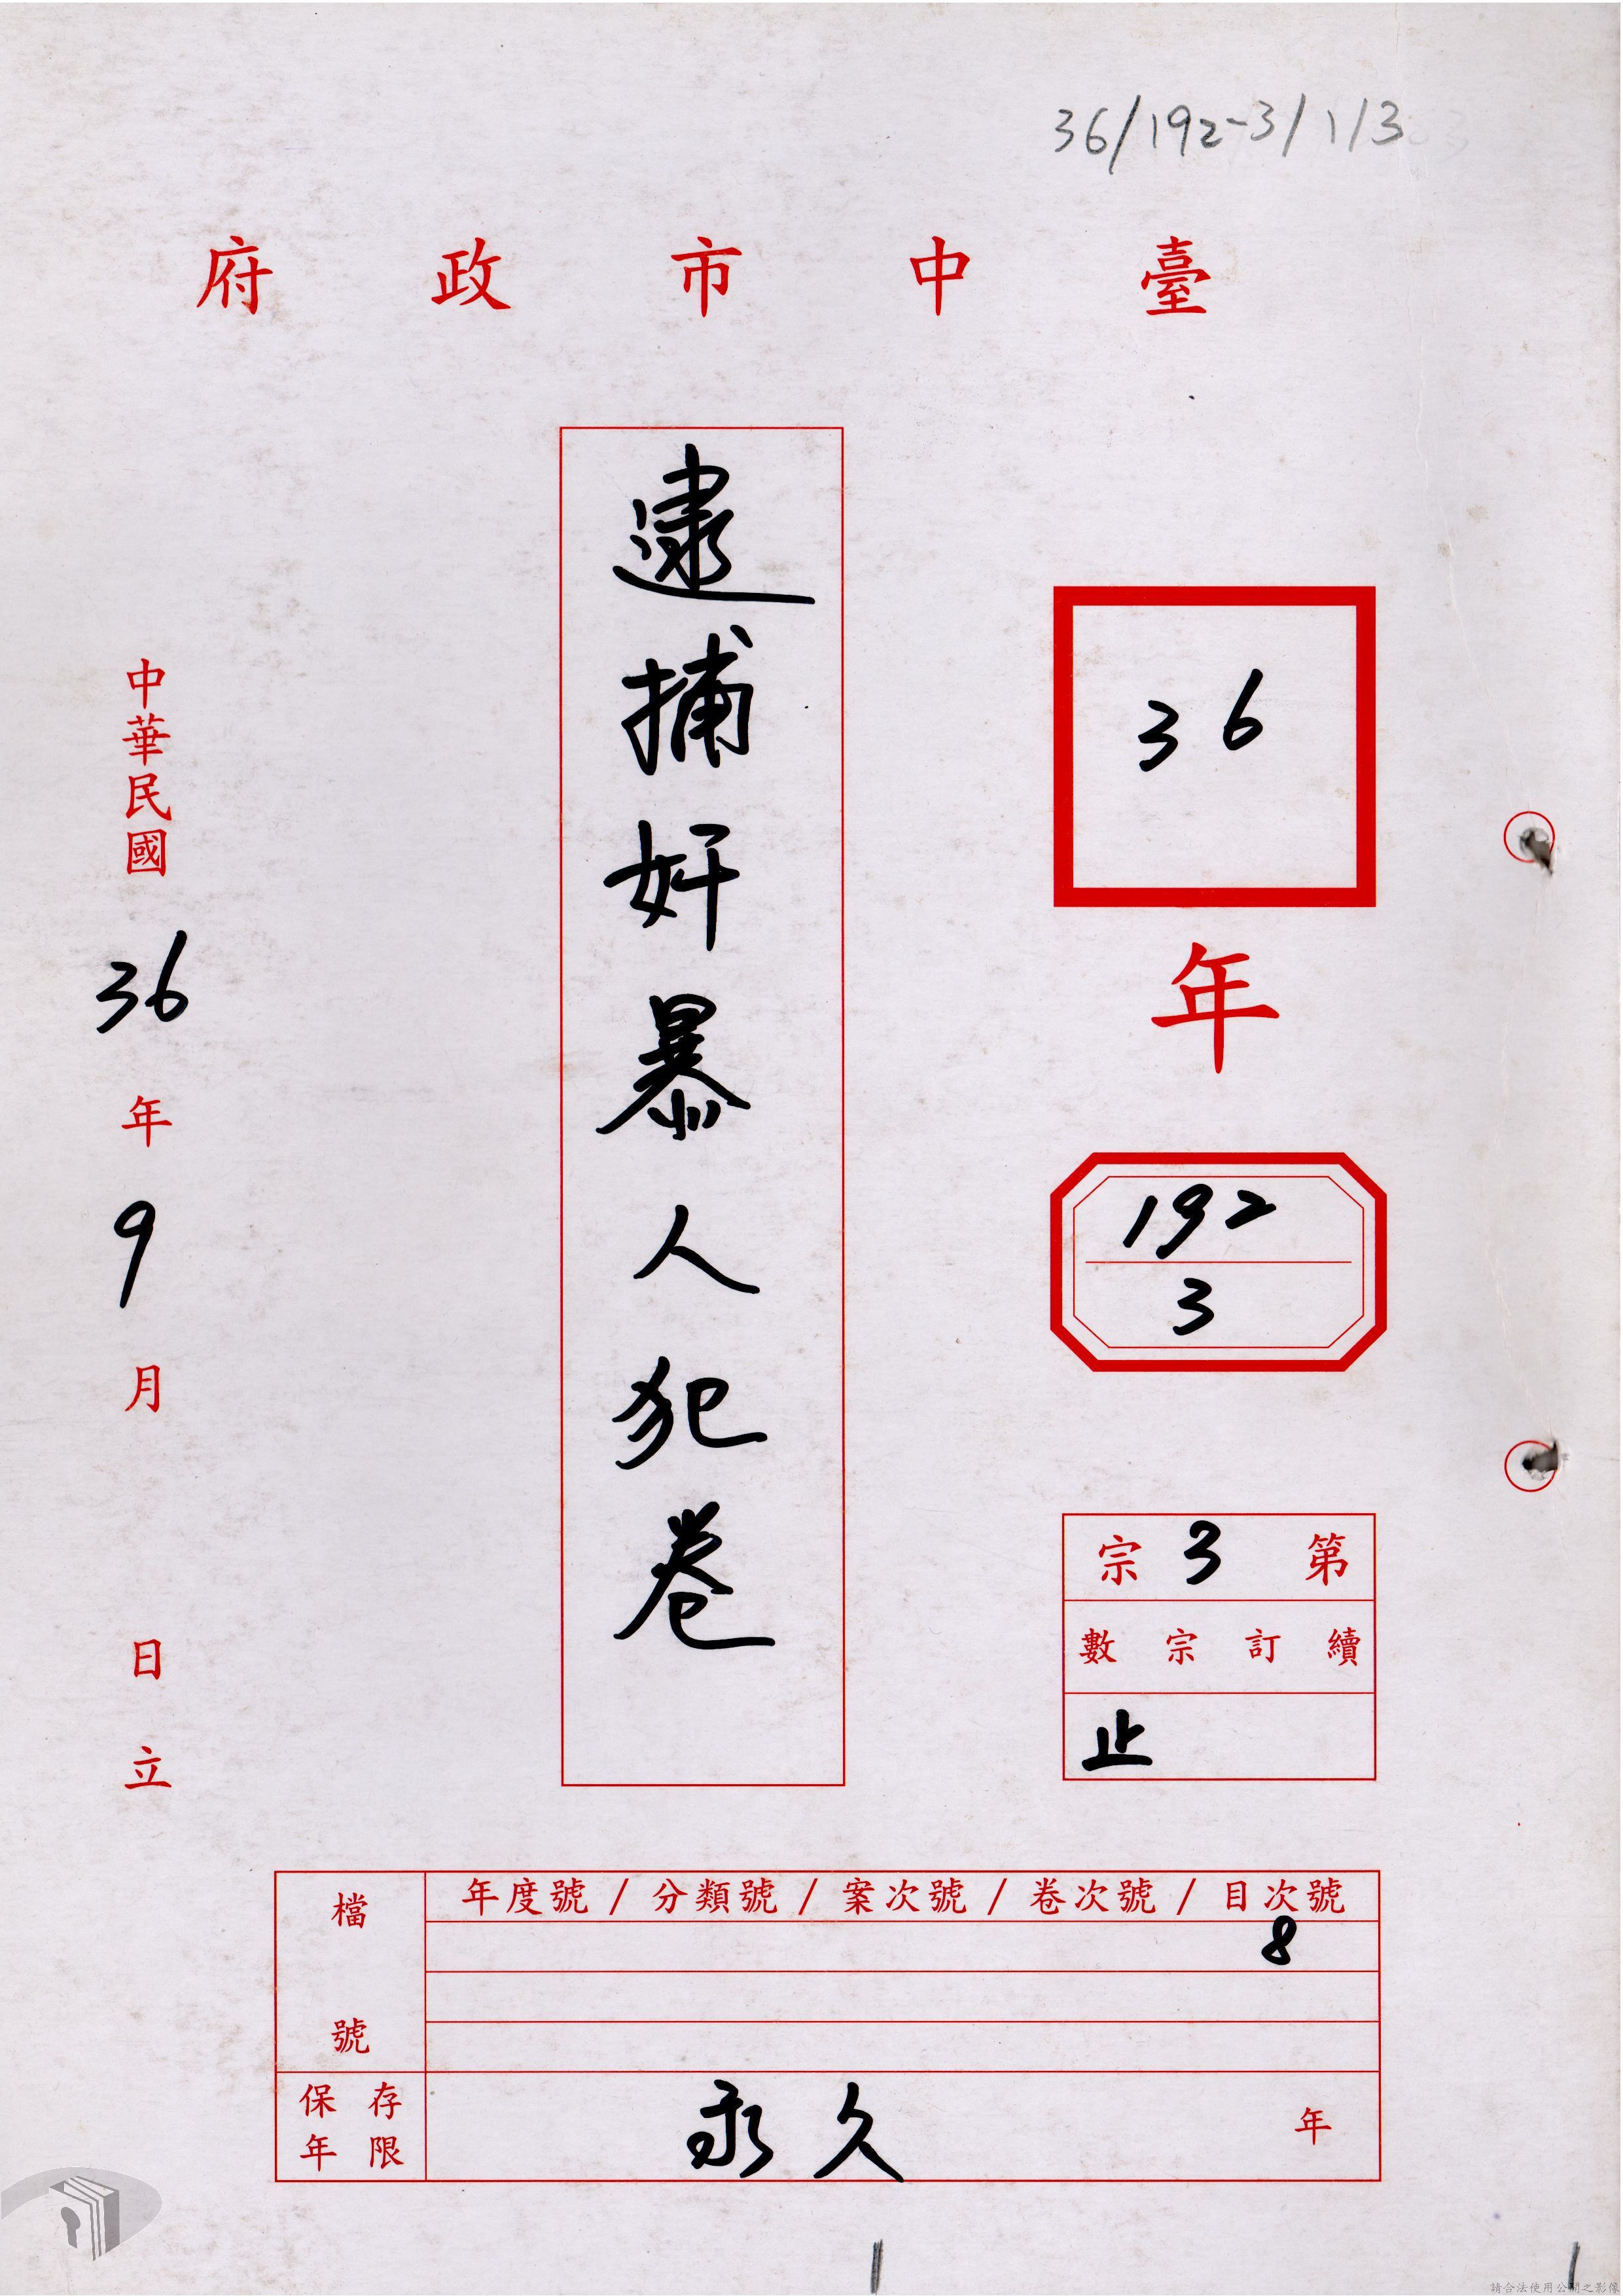 36/192-3/1/3
臺中市政府
36
年
192
3
第3宗
續訂宗數
止
逮捕奸暴人犯卷
中華民國36年9月日立
檔號
年度號/分類號/案次號/卷次號/目次號
8
保存年限
永久年
1
1
請合法使用公開之影像